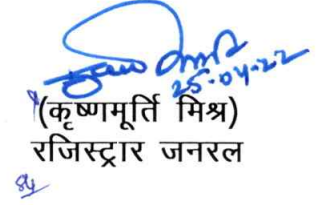 25-04-22
(कृष्णमूर्ति मिश्र)
रजिस्ट्रार जनरल